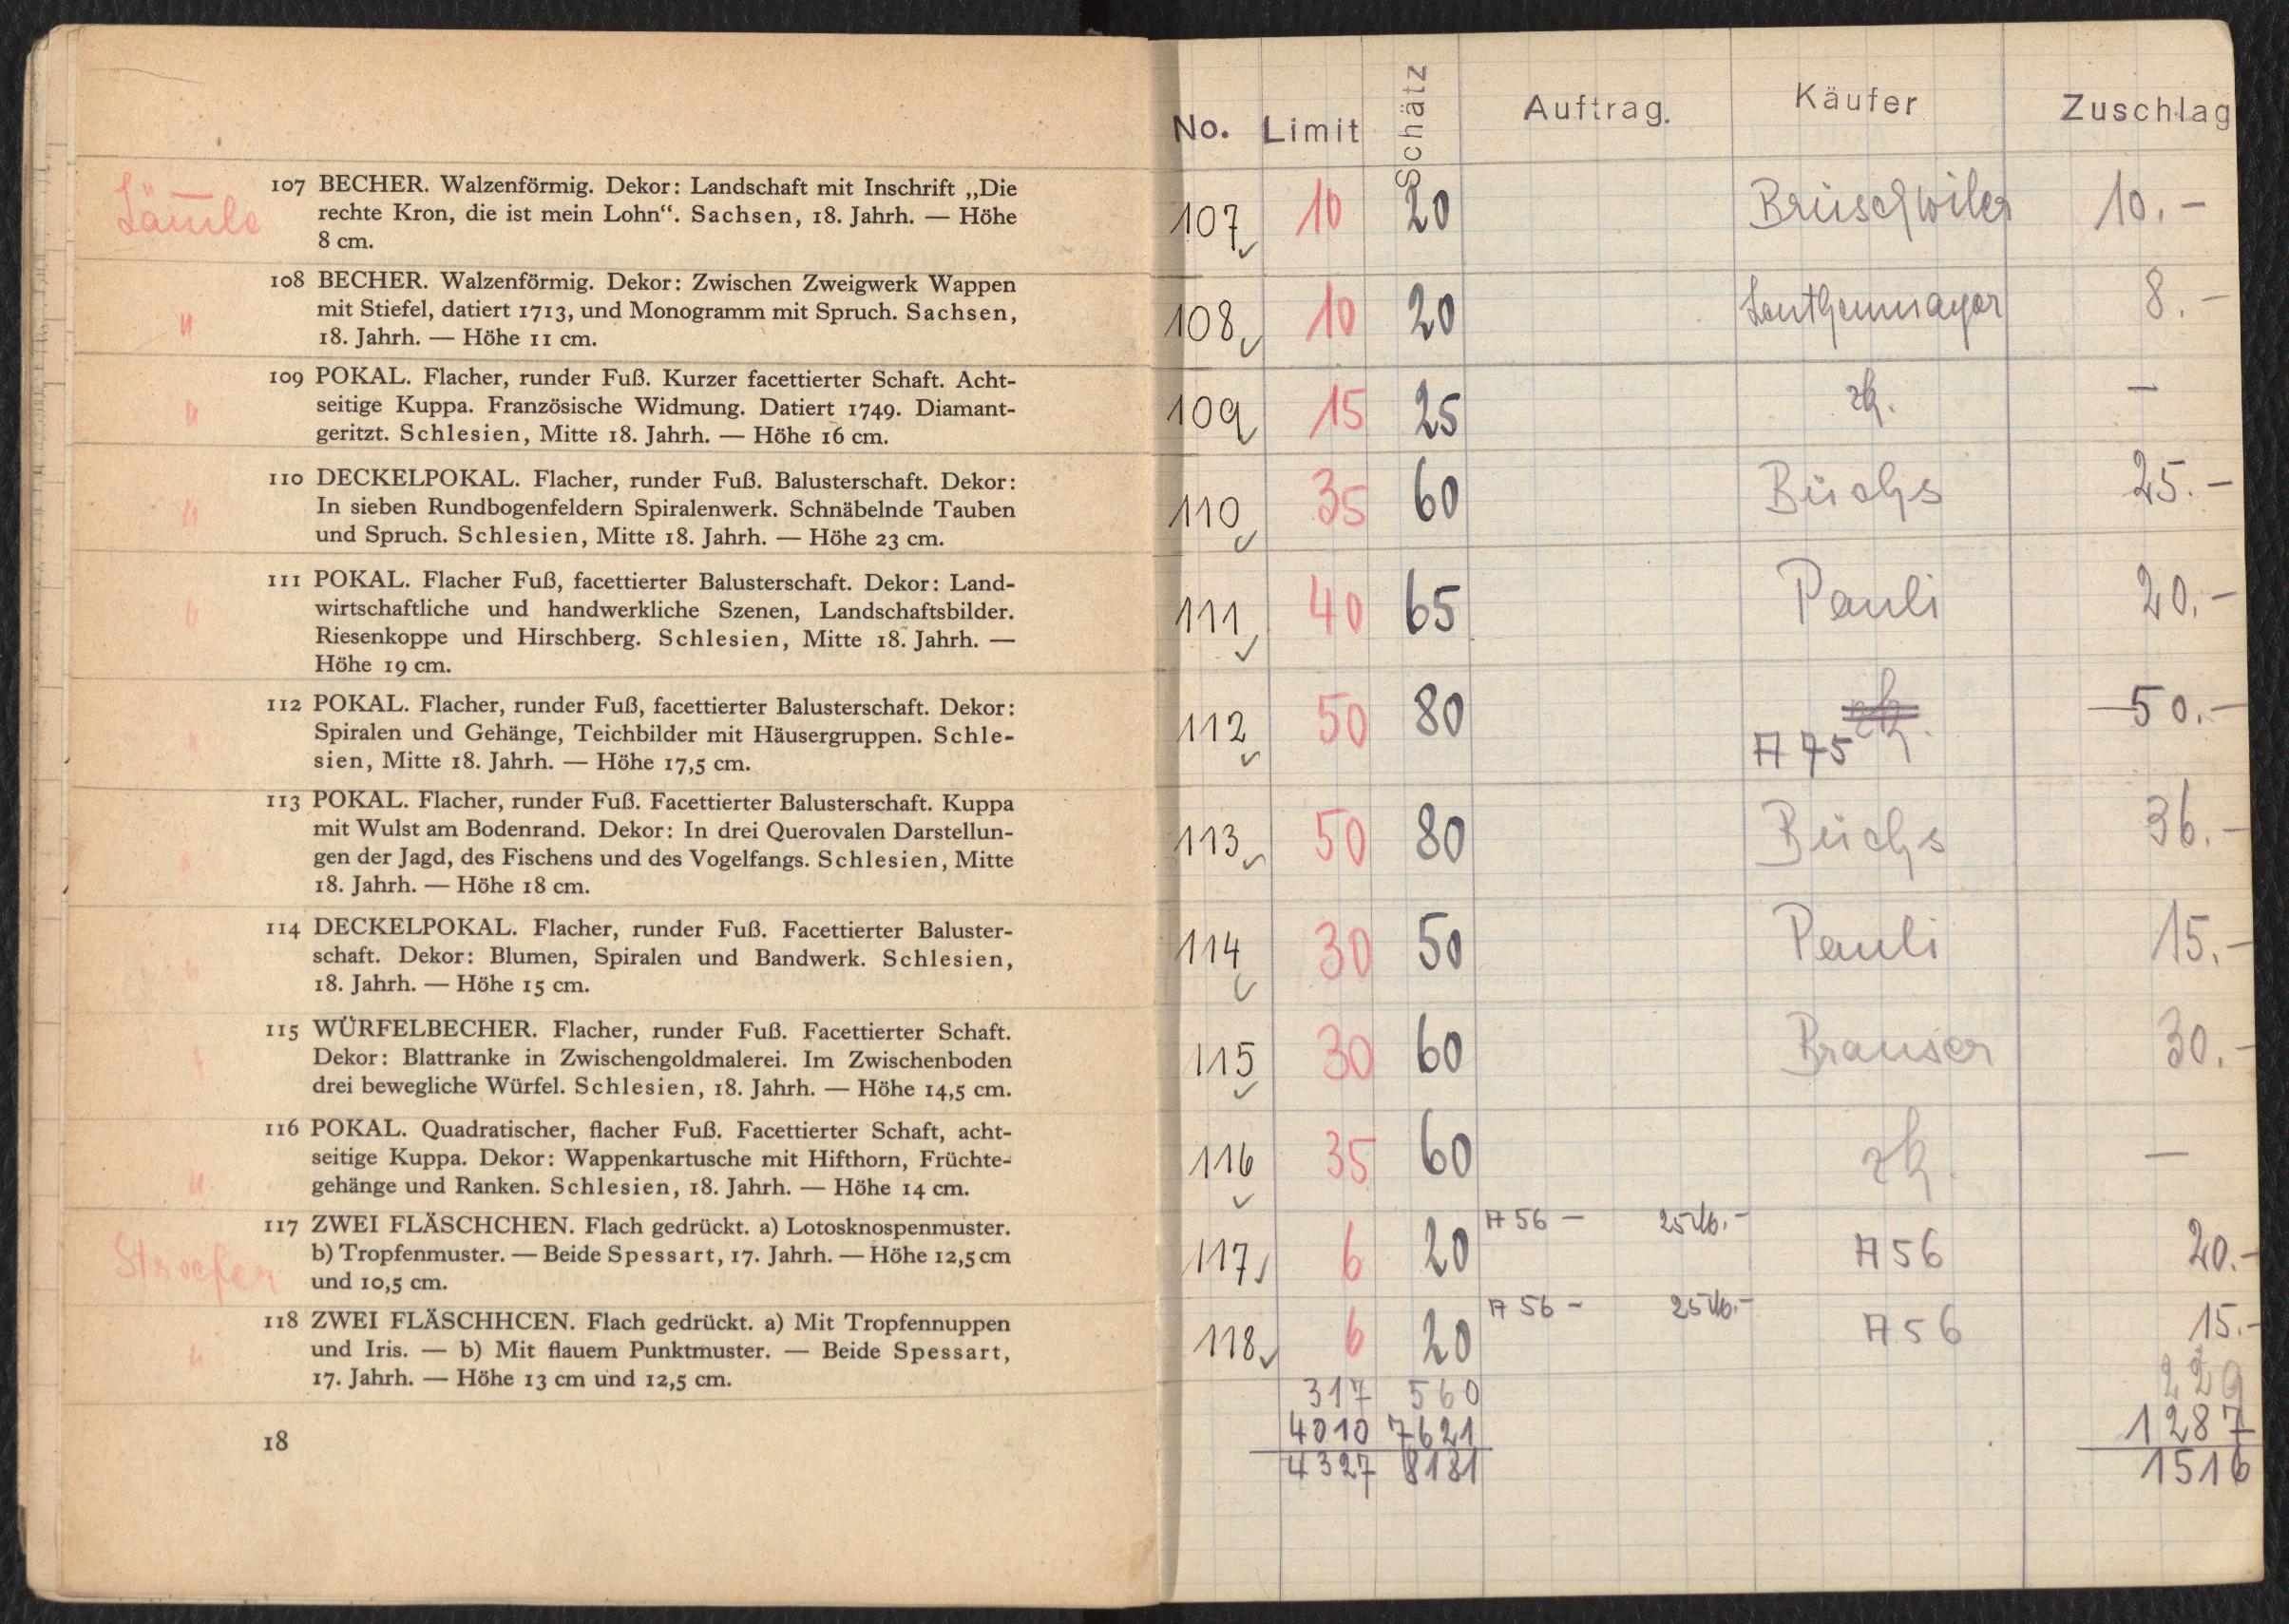 Lämle
107 BECHER. Walzenförmig. Dekor: Landschaft mit Inschrift „Die
rechte Kron, die ist mein Lohn“. Sachsen, 18. Jahrh. — Höhe
8 cm.
"
108 BECHER. Walzenförmig. Dekor: Zwischen Zweigwerk Wappen
mit Stiefel, datiert 1713, und Monogramm mit Spruch. Sachsen,
18. Jahrh. — Höhe 11 cm.
"
109 POKAL. Flacher, runder Fuß. Kurzer facettierter Schaft. Acht-
seitige Kuppa. Französische Widmung. Datiert 1749. Diamant-
geritzt. Schlesien, Mitte 18. Jahrh. — Höhe 16 cm.
"
110 DECKELPOKAL. Flacher, runder Fuß. Balusterschaft. Dekor:
In sieben Rundbogenfeldern Spiralenwerk. Schnäbelnde Tauben
und Spruch. Schlesien, Mitte 18. Jahrh. — Höhe 23 cm.
"
111 POKAL. Flacher Fuß, facettierter Balusterschaft. Dekor: Land-
wirtschaftliche und handwerkliche Szenen, Landschaftsbilder.
Riesenkoppe und Hirschberg. Schlesien, Mitte 18. Jahrh. —
Höhe 19 cm.
"
112 POKAL. Flacher, runder Fuß, facettierter Balusterschaft. Dekor:
Spiralen und Gehänge, Teichbilder mit Häusergruppen. Schle-
sien, Mitte 18. Jahrh. — Höhe 17,5 cm.
"
113 POKAL. Flacher, runder Fuß. Facettierter Balusterschaft. Kuppa
mit Wulst am Bodenrand. Dekor: In drei Querovalen Darstellun-
gen der Jagd, des Fischens und des Vogelfangs. Schlesien, Mitte
18. Jahrh. — Höhe 18 cm.
"
114 DECKELPOKAL. Flacher, runder Fuß. Facettierter Baluster-
schaft. Dekor: Blumen, Spiralen und Bandwerk. Schlesien,
18. Jahrh. — Höhe 15 cm.
"
115 WÜRFELBECHER. Flacher, runder Fuß. Facettierter Schaft.
Dekor: Blattranke in Zwischengoldmalerei. Im Zwischenboden
drei bewegliche Würfel. Schlesien, 18. Jahrh. — Höhe 14,5 cm.
"
116 POKAL. Quadratischer, flacher Fuß. Facettierter Schaft, acht-
seitige Kuppa. Dekor: Wappenkartusche mit Hifthorn, Früchte-
gehänge und Ranken. Schlesien, 18. Jahrh. — Höhe 14 cm.
"
Stroefer
117 ZWEI FLÄSCHCHEN. Flach gedrückt. a) Lotosknospenmuster.
b) Tropfenmuster. — Beide Spessart, 17. Jahrh. — Höhe 12,5 cm
und 10,5 cm.
118 ZWEI FLÄSCHHCEN. Flach gedrückt. a) Mit Tropfennuppen
und Iris. — b) Mit flauem Punktmuster. — Beide Spessart,
17. Jahrh. — Höhe 13 cm und 12,5 cm.
"
18
No. Limit Schätz Auftrag. Käufer Zuschlag
107 10 20 Brüschwiler 10.-
108 10 20 8.-
109 15 25 zk. -
110 35 60 Büchs 25.-
111 40 65 Pauli 20.-
112 50 80 zk. 50.-
A 75
113 50 80 Büchs 36.-
114 30 50 Pauli 15.-
115 30 60 Brauser 30.-
116 35 60 zk. -
117 6 20 A 56 - 25 M.- A 56 20.-
118 6 20 A 56 - 25 M.- A 56 15.-
317 560 229
4010 7621 1287
4327 8181 1516